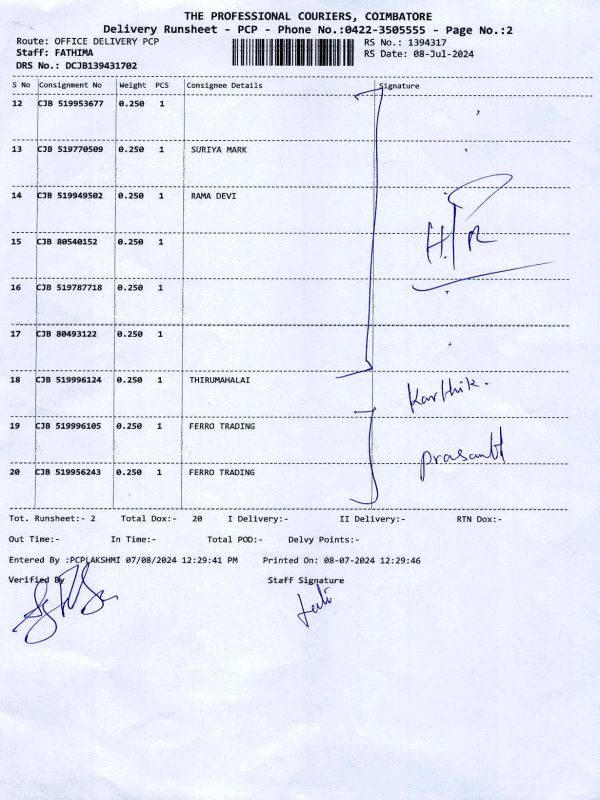 THE PROFESSIONAL COURIERS, COIMBATORE
Delivery Runsheet - PCP - Phone No.:0422-3505555 - Page No.:2
Route: OFFICE DELIVERY PCP
RS No.: 1394317
Staff: FATHIMA
RS Date: 08-Jul-2024
DRS No.: DCJB139431702
S No Consignment No Weight PCS Consignee Details Signature
12 CJB 519953677 0.250 1
13 CJB 519770509 0.250 1 SURIYA MARK
14 CJB 519949502 0.250 1 RAMA DEVI
15 CJB 80540152 0.250 1
16 CJB 519787718 0.250 1
17 CJB 80493122 0.250 1
18 CJB 519996124 0.250 1 THIRUMAHALAI Karthik.
19 CJB 519996105 0.250 1 FERRO TRADING
prasanth
20 CJB 519956243 0.250 1 FERRO TRADING
Tot. Runsheet:- 2 Total Dox:- 20 I Delivery:- II Delivery:- RTN Dox:-
Out Time:- In Time:- Total POD:- Delvy Points:-
Entered By :PCPLAKSHMI 07/08/2024 12:29:41 PM Printed On: 08-07-2024 12:29:46
Verified By Staff Signature